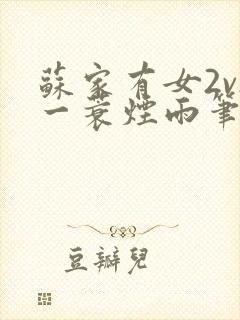 蘇家有女2v
一蓑煙雨筆
豆瓣兒